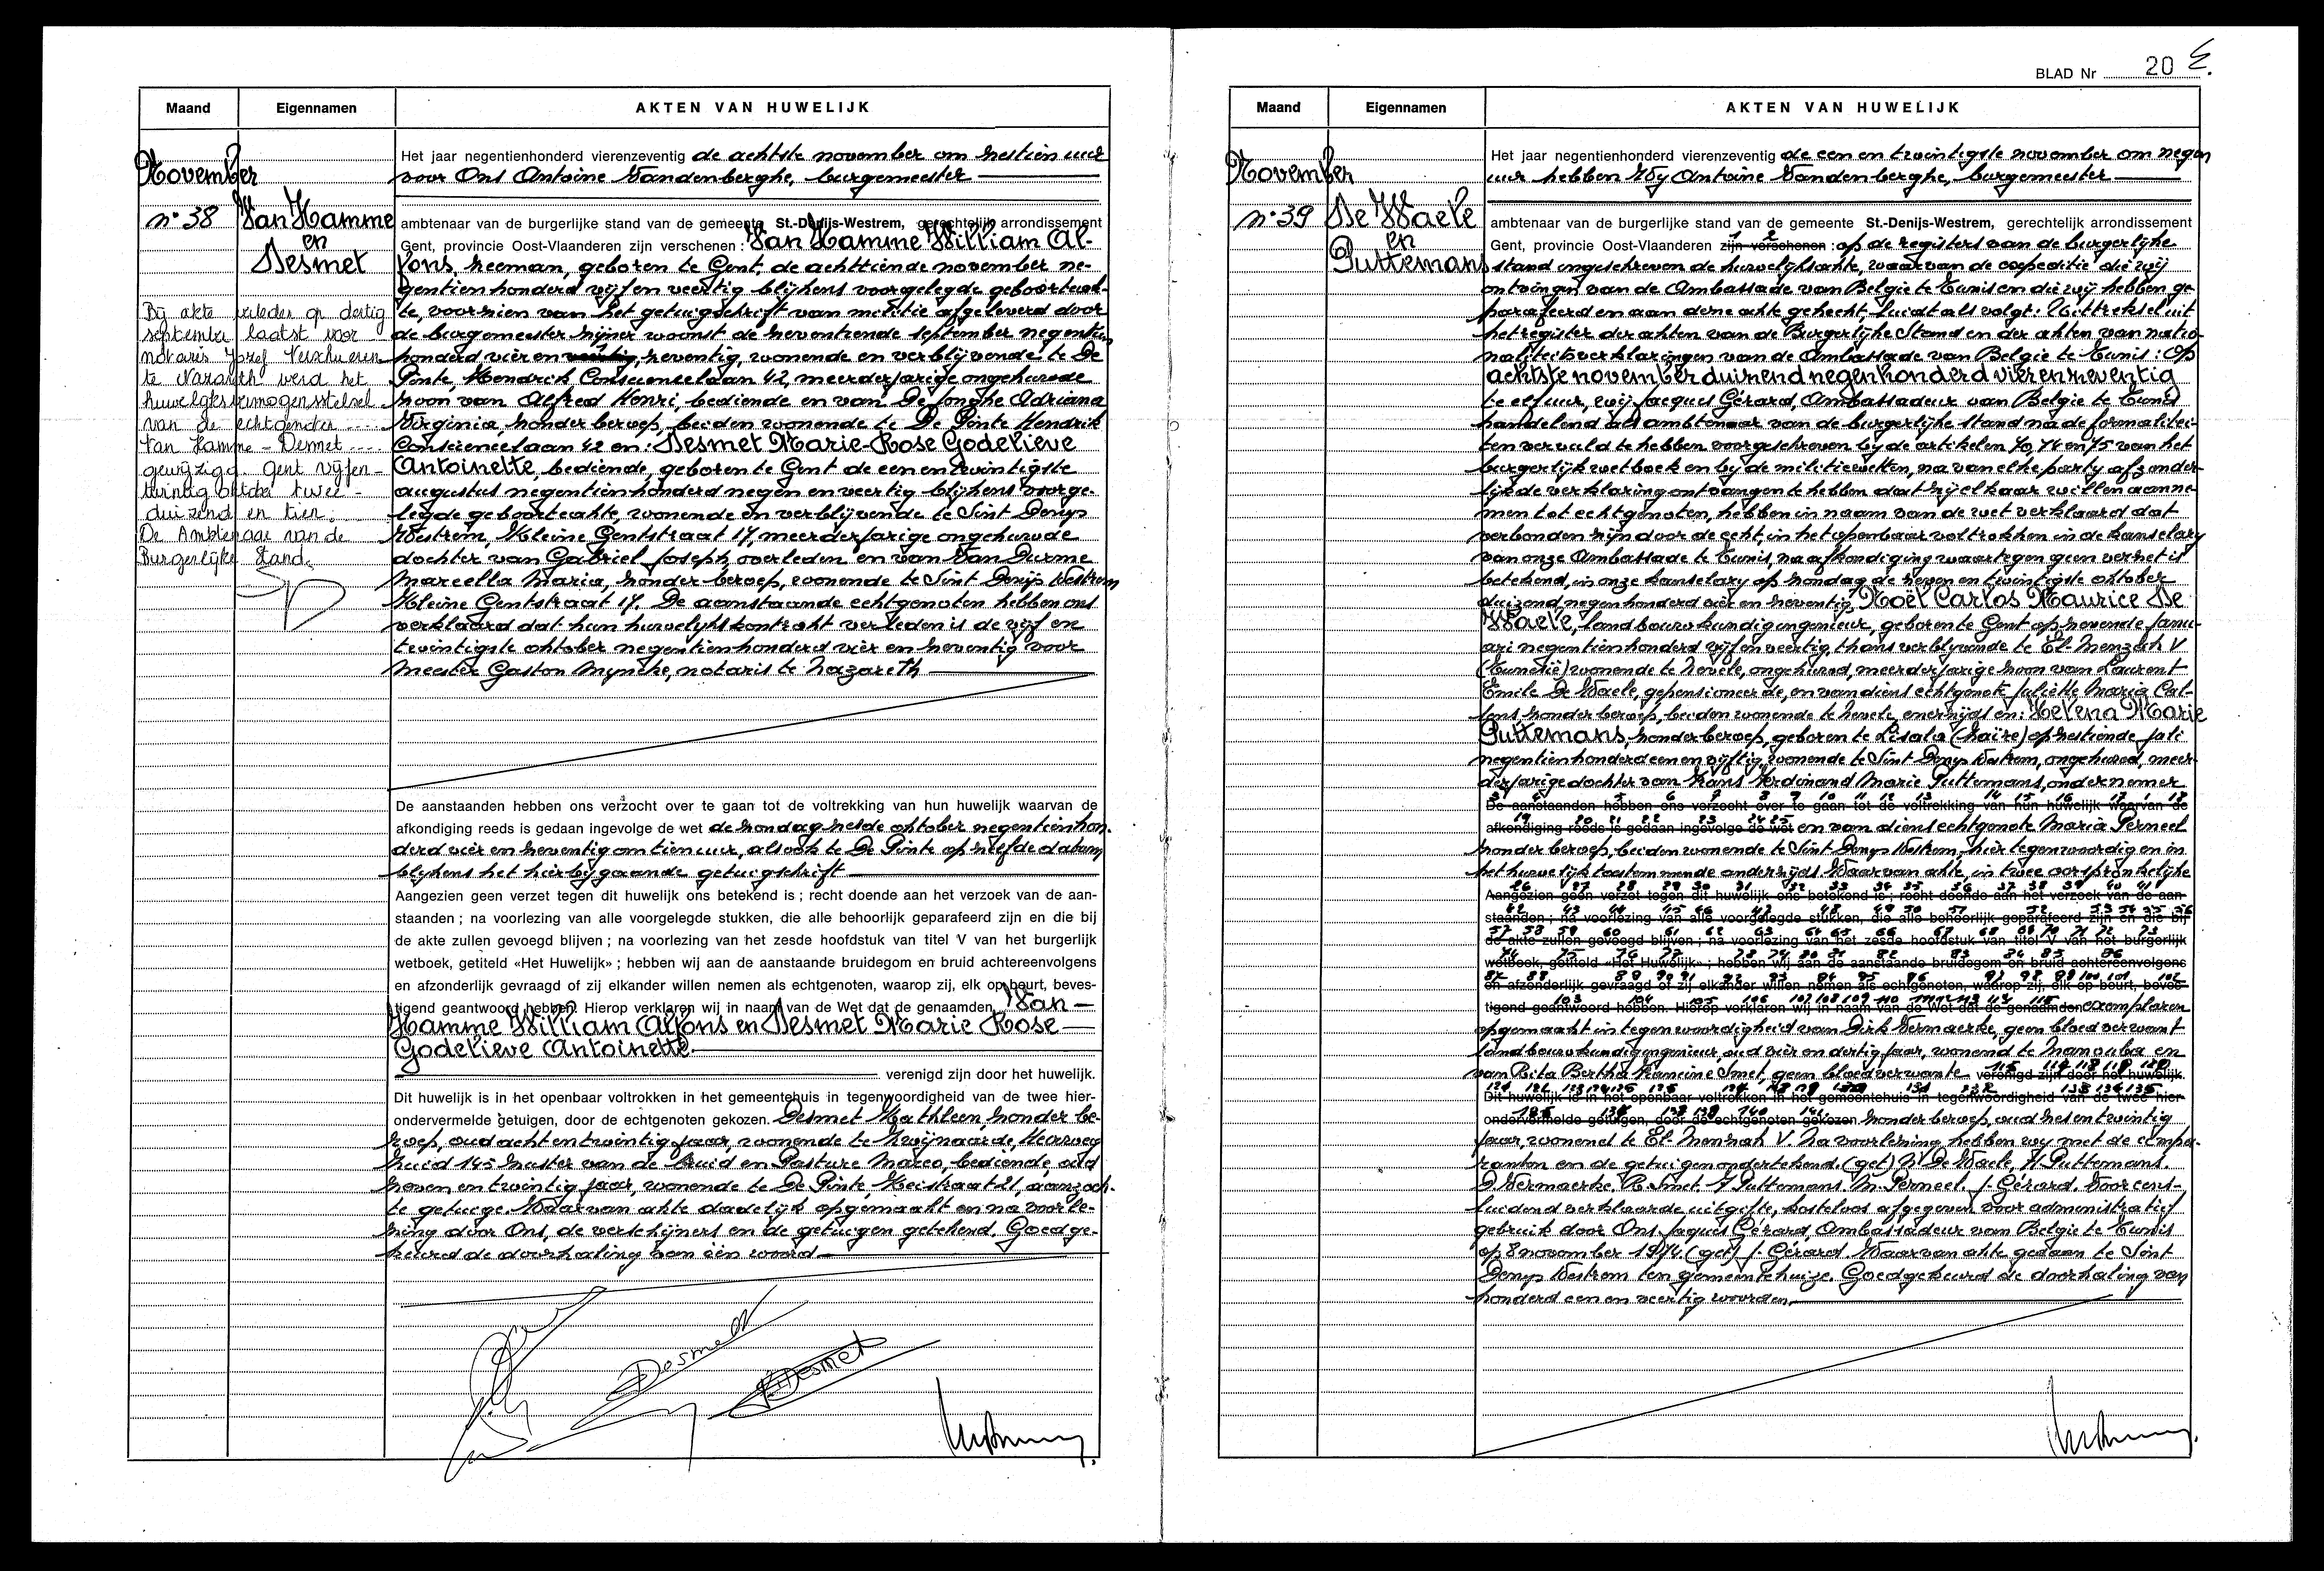 Maand Eigennamen AKTEN VAN HUWELIJK
November
n° 38 Van Hamme
en
Desmet
Bij akte verleden op dertig
september laatst voor
notaris Jozef Verschueren
te Nazareth werd het
huwelijksvermogensstelsel
van de echtgenoten ....
Van Hamme - Desmet ...
gewijzigd. Gent vijfen-
twintig oktober twee-
duizend en tien.
De Ambtenaar van de
Burgerlijke Stand.
Het jaar negentienhonderd vierenzeventig de achtste november om zestien uur
voor Ons Antoine Vandenberghe, burgemeester
ambtenaar van de burgerlijke stand van de gemeente St.-Denijs-Westrem, gerechtelijk arrondissement
Gent, provincie Oost-Vlaanderen zijn verschenen : Van Hamme William Al-
fons, zeeman, geboren te Gent, de achttiende november ne-
gentien honderd vijf en veertig blijkens voorgelegde geboorteak-
te, voorzien van het getuigschrift van militie afgeleverd door
de burgemeester zijner woonst de zeventiende september negentien
honderd vier en zeventig, wonende en verblijvende te De
Pinte, Hendrick Consciencelaan 42, meerderjarige ongehuwde
zoon van Alfred Henri, bediende en van De Jonghe Adriana
Virginia, zonder beroep, beiden wonende te De Pinte Hendrik
Consciencelaan 42 en: Desmet Marie-Rose Godelieve
Antoinette, bediende, geboren te Gent de een en twintigste
augustus negentien honderd negen en veertig blijkens voorge-
legde geboorteakte, wonende en verblijvende te Sint Denijs
Westrem, Kleine Gentstraat 17, meerderjarige ongehuwde
dochter van Gabriel Joseph, overleden en van Van Durme
Marcella Maria, zonder beroep, wonende te Sint Denijs Westrem
Kleine Gentstraat 17. De aanstaande echtgenoten hebben ons
verklaard dat hun huwelijkskontrakt verleden is de vijf en
twintigste oktober negentienhonderd vier en zeventig voor
meester Gaston Myncke, notaris te Nazareth
De aanstaanden hebben ons verzocht over te gaan tot de voltrekking van hun huwelijk waarvan de
afkondiging reeds is gedaan ingevolge de wet de zondag zesde oktober negentienhon-
derd vier en zeventig om tien uur, alsook te De Pinte op zelfde datum
blijkens het hierbijgaande getuigschrift
Aangezien geen verzet tegen dit huwelijk ons betekend is ; recht doende aan het verzoek van de aan-
staanden ; na voorlezing van alle voorgelegde stukken, die alle behoorlijk geparafeerd zijn en die bij
de akte zullen gevoegd blijven ; na voorlezing van het zesde hoofdstuk van titel V van het burgerlijk
wetboek, getiteld «Het Huwelijk» ; hebben wij aan de aanstaande bruidegom en bruid achtereenvolgens
en afzonderlijk gevraagd of zij elkander willen nemen als echtgenoten, waarop zij, elk op beurt, beves-
tigend geantwoord hebben. Hierop verklaren wij in naam van de Wet dat de genaamden Van
Hamme William Alfons en Desmet Marie Rose
Godelieve Antoinette
verenigd zijn door het huwelijk.
Dit huwelijk is in het openbaar voltrokken in het gemeentehuis in tegenwoordigheid van de twee hier-
ondervermelde getuigen, door de echtgenoten gekozen. Desmet Kathleen, zonder be-
roep, oud acht en twintig jaar, wonende te Zwijnaarde, Heerweg
Zuid 145 zuster van de bruid en Pasture Marco, bediende, oud
zeven en twintig jaar, wonende te De Pinte, Heistraat 21, aanzoch-
te getuige. Waarvan akte dadelijk opgemaakt en na voorle-
zing door Ons, de verschijners en de getuigen getekend. Goedge-
keurd de doorhaling van één woord
Desmet
Desmet
BLAD Nr 20
Maand Eigennamen AKTEN VAN HUWELIJK
November
n° 39 De Waele
en
Puttemans
Het jaar negentienhonderd vierenzeventig de een en twintigste november om negen
uur hebben Wij Antoine Vandenberghe, burgemeester
ambtenaar van de burgerlijke stand van de gemeente St.-Denijs-Westrem, gerechtelijk arrondissement
Gent, provincie Oost-Vlaanderen zijn verschenen : op de registers van de burgerlijke
stand ingeschreven de huwelijksakte, waarvan de expeditie die wij
ontvingen van de Ambassade van Belgie te Tunis en die wij hebben ge-
parafeerd en aan deze akte gehecht, luidt als volgt: Uittreksel uit
het register der akten van de Burgerlijke Stand en der akten van natio-
naliteitsverklaringen van de Ambassade van Belgie te Tunis : Op
achtste november duizend negenhonderd vierenzeventig
te elf uur, wij Jacques Gérard, Ambassadeur van Belgie te Tunis
handelend als ambtenaar van de burgerlijke stand na de formalitei-
ten vervuld te hebben voorgeschreven bij de artikelen 70, 74 en 75 van het
burgerlijk wetboek en bij de militiewetten, na van elke partij afzonder-
lijk de verklaring ontvangen te hebben dat zij elkaar willen aanne-
men tot echtgenoten, hebben in naam van de wet verklaard dat
verbonden zijn door de echt, in het openbaar voltrokken in de kanselary
van onze Ambassade te Tunis, na afkondiging waartegen geen verzet is
betekend, in onze kanselary op zondag de zeven en twintigste oktober
duizend negenhonderd vier en zeventig, Noël Carlos Maurice De
Waele, landbouwkundig ingenieur, geboren te Gent op zevende janu-
ari negentienhonderd vijf en veertig, thans verblijvende te El-Menzah V
(Tunesië) wonende te Nevele, ongehuwd, meerderjarige zoon van Laurent
Emile De Waele, gepensioneerde, en van diens echtgenote Juliette Maria Cal-
lens, zonder beroep, beiden wonende te Nevele, enerzijds en: Helena Marie
Puttemans, zonder beroep, geboren te Lisala (Zaïre) op zestiende juli
negentienhonderd een en vijftig, wonende te Sint Denijs Westrem, ongehuwd, meer-
derjarige dochter van Frans Ferdinand Marie Puttemans, ondernemer
De aanstaanden hebben ons verzocht over te gaan tot de voltrekking van hun huwelijk waarvan de
afkondiging reeds is gedaan ingevolge de wet en van diens echtgenote Maria Permeel
zonder beroep, beiden wonende te Sint Denijs Westrem, hier tegenwoordig en in
het huwelijk toestemmende anderzijds. Waarvan akte, in twee oorspronkelijke
Aangezien geen verzet tegen dit huwelijk ons betekend is ; recht doende aan het verzoek van de aan-
staanden ; na voorlezing van alle voorgelegde stukken, die alle behoorlijk geparafeerd zijn en die bij
de akte zullen gevoegd blijven ; na voorlezing van het zesde hoofdstuk van titel V van het burgerlijk
wetboek, getiteld «Het Huwelijk» ; hebben wij aan de aanstaande bruidegom en bruid achtereenvolgens
en afzonderlijk gevraagd of zij elkander willen nemen als echtgenoten, waarop zij, elk op beurt, beves-
tigend geantwoord hebben. Hierop verklaren wij in naam van de Wet dat de genaamden exemplaren
opgemaakt in tegenwoordigheid van Dirk Vermaerke, geen bloedverwant
landbouwkundig ingenieur, oud vier en dertig jaar, wonend te Manouba en
van Rita Bertha Francine Smet, geen bloedverwante verenigd zijn door het huwelijk.
Dit huwelijk is in het openbaar voltrokken in het gemeentehuis in tegenwoordigheid van de twee hier-
ondervermelde getuigen, door de echtgenoten gekozen. zonder beroep, oud zes en twintig
jaar, wonend te El-Menzah V. Na voorlezing hebben wij met de compa-
ranten en de getuigen ondertekend. (get) N. De Waele, H. Puttemans.
D. Vermaerke. R. Smet. F. Puttemans. M. Permeel. J. Gérard. Voor eens-
luidend verklaarde uitgifte, kosteloos afgegeven voor administratief
gebruik door Ons, Jaques Gérard, Ambassadeur van Belgie te Tunis
op 8 november 1974. (get) J. Gérard. Waarvan akte gedaan te Sint
Denijs Westrem ten gemeentehuize. Goedgekeurd de doorhaling van
honderd een en veertig woorden.